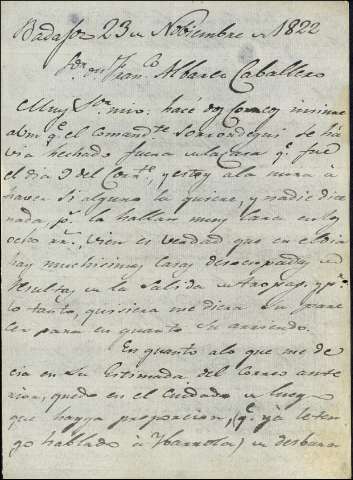 Badajoz 23 de Noviembre de 1822
Sor. Dn. Franco. Albares Caballero
Muy Sor. mio: hace dos Correos insinue
a Vm. qe. el Comandte. Sorrondegui se ha
via hechado fuera de la casa qe. fue
el dia 9 del Corte., y estoy a la mira á
haver si alguno la quiere, y nadie dice
nada, ps. la hallan muy cara en los
ocho rs., vien es verdad que en el dia
hay muchisimas casas desocupadas de
resultas de la salida de tropas, y pr.
lo tanto, quisiera me diera su pare
cer para en quanto su arriendo.
En quanto a lo que me de
cia en su Estimada del Correo ante
rior, quedo en el Cuidado de luego
que hayga proporcion, (qe. ya le ten
go hablado à) de desbara